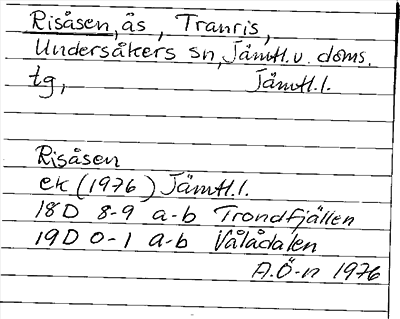 Risåsen, ås, Tranris,
Undersåkers sn, Jämtl. v. doms.
tg, Jämtl. l.
Risåsen
ek (1976) Jämtl. l.
18D 8-9 a-b Trondfjällen
19D 0-1 a-b Vålådalen
A.Ö-n 1976